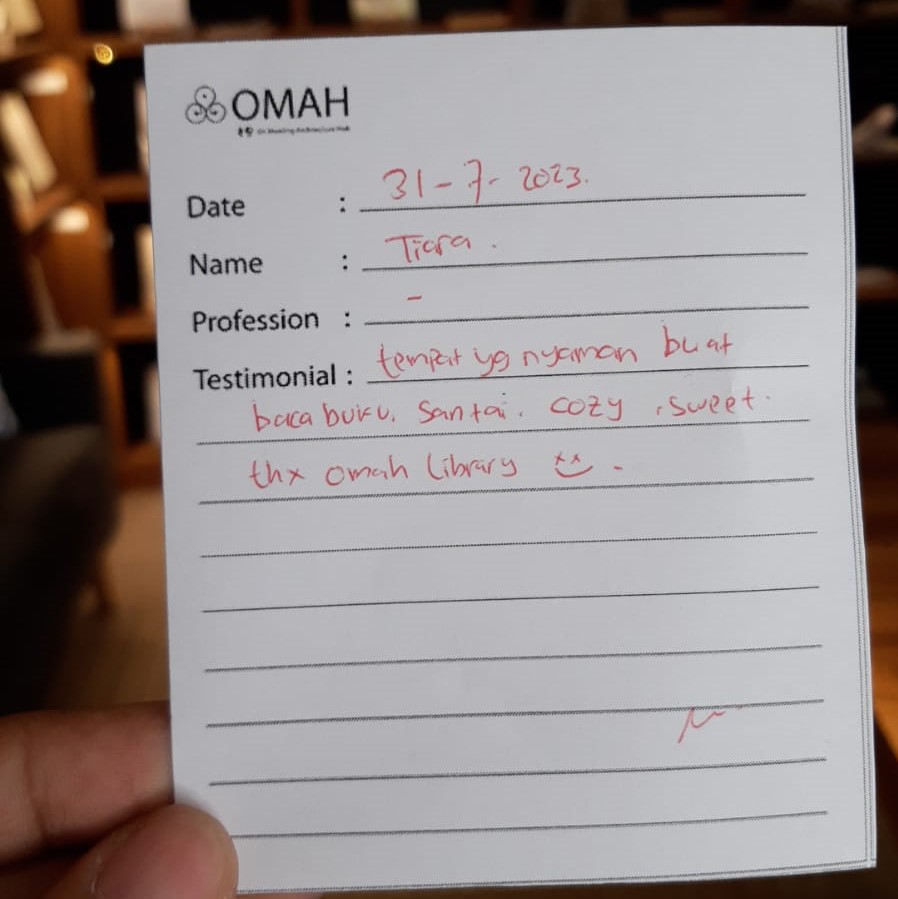 OMAH
Date : 31-7-2023.
Name : Tiara.
Profession : -
Testimonial : tempat yg nyaman buat
baca buku, santai. cozy, sweet.
thx omah library